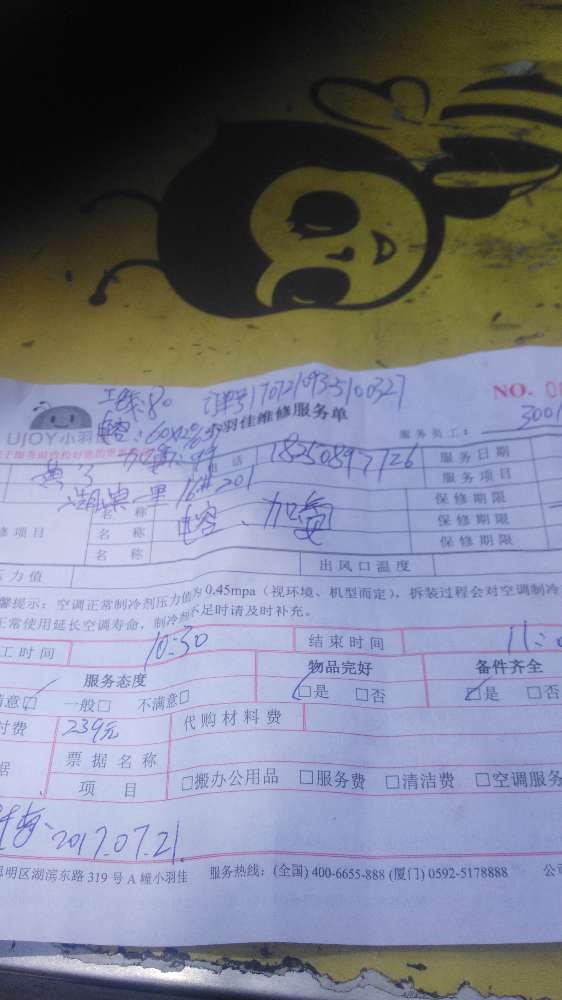 工钱:80 订单号17072109335100327
NO. 0
UJOY小羽佳 小羽佳维修服务单
服务员工: 3001
电话 18250897726 服务日期
服务项目
16# 201
名称 电容、加氟 保修期限
修项目 名称 保修期限
名称 保修期限
压力值 出风口温度
馨提示:空调正常制冷剂压力值为0.45mpa(视环境、机型而定),拆装过程会对空调制冷
正常使用延长空调寿命,制冷剂不足时请及时补充。
工时间 10:30 结束时间 11:0
服务态度 物品完好 备件齐全
满意☑ 一般□ 不满意□ ☑是 □否 ☑是 □否
付费 239元 代购材料费
据 票据名称
项目 □搬办公用品 □服务费 □清洁费 □空调服务
2017.07.21
思明区湖滨东路319号A幢小羽佳 服务热线:(全国) 400-6655-888 (厦门) 0592-5178888 公司